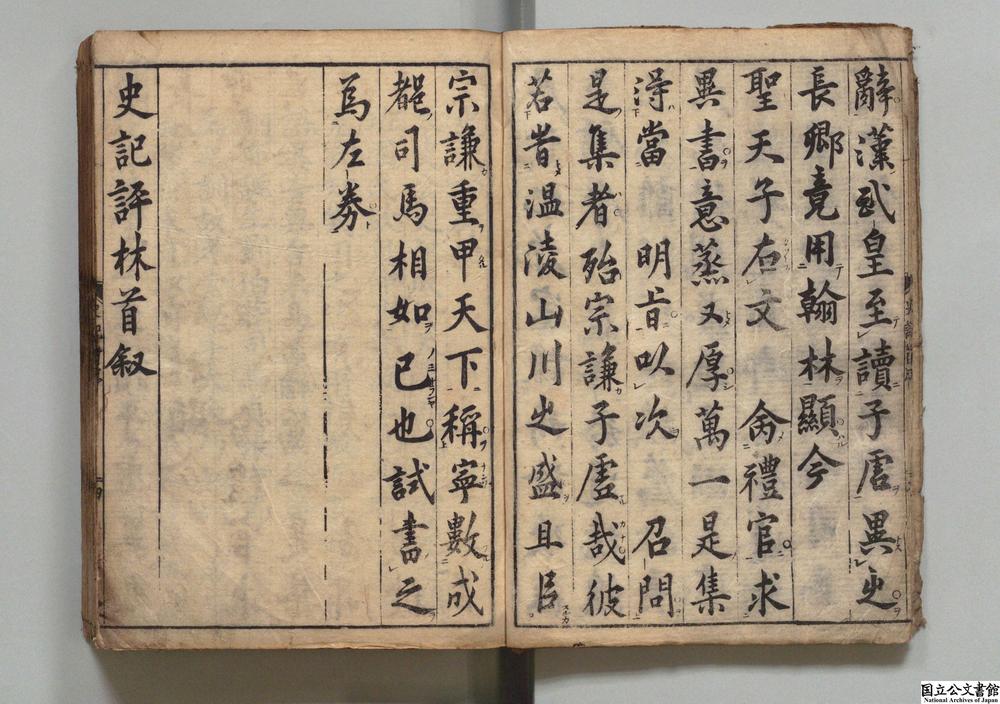 辭漢武皇至讀子虛異之
長卿竟用翰林顯今
聖天子右文 命禮官求
異書意蒸又厚萬一是集
得當 明旨以次 召問
是集者殆宗謙子虛哉彼
若昔温陵山川之盛且臣
宗謙重甲天下稱寧數成
都司馬相如已也試書之
為左券
史記評林首叙
国立公文書館
National Archives of Japan